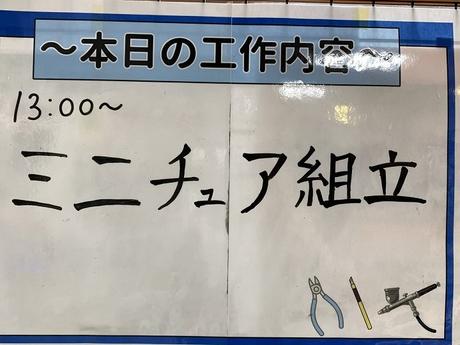 ～本日の工作内容～
13:00～
ミニチュア組立